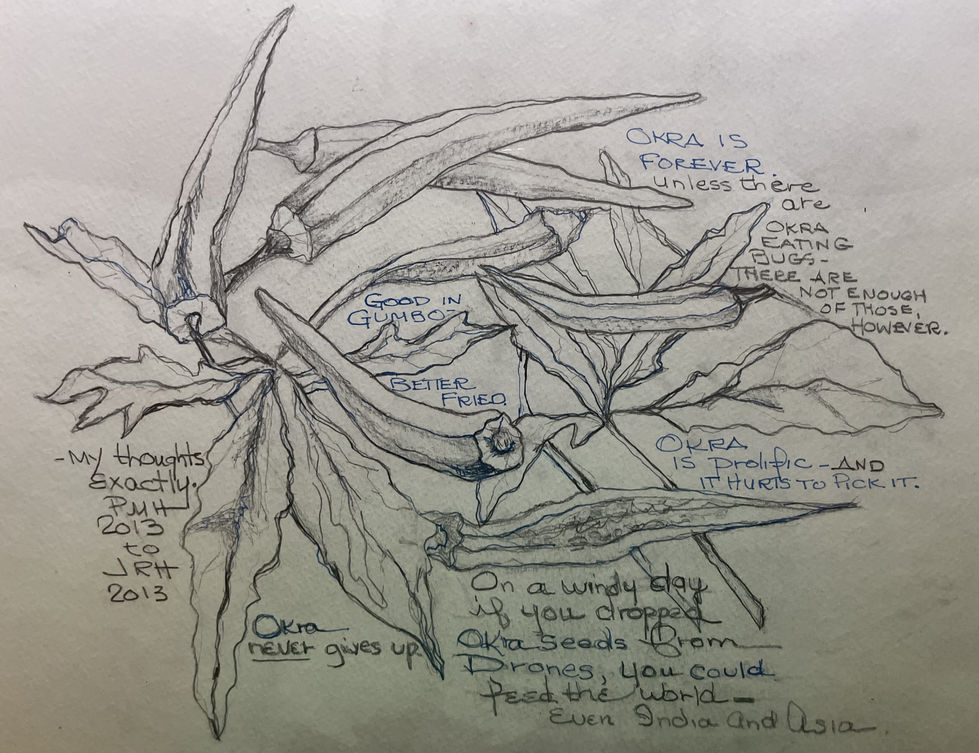 OKRA IS
FOREVER.
unless there
are
OKRA
EATING
BUGS-
THERE ARE
NOT ENOUGH
OF THOSE,
HOWEVER.
GOOD IN
GUMBO-
BETTER
FRIED
OKRA
IS prolific - AND
IT HURTS TO PICK IT.
- My thoughts
Exactly.
PMH
2013
to
JRH
2013
Okra
never gives up.
On a windy day
if you dropped
Okra seeds from
Drones, you could
feed the world -
Even India and Asia.